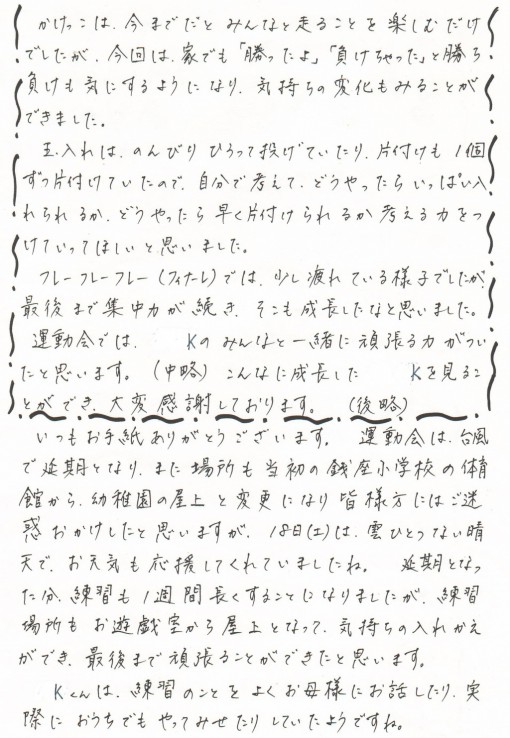 かけっこは、今までだと みんなと走ることを楽しむだけ
でしたが、今回は、家でも「勝ったよ」「負けちゃった」と勝ち
負けも気にするようになり、気持ちの変化もみることが
できました。
玉入れは、のんびり ひろって投げていたり、片付けも 1個
ずつ片付けていたので、自分で考えて、どうやったら いっぱい入
れられるか、どうやったら早く片付けられるか考える力をつ
けていってほしいと思いました。
フレーフレーフレー(フィナーレ)では、少し疲れている様子でしたが、
最後まで集中力が続き、そこも成長したなと思いました。
運動会では、 Kのみんなと一緒に頑張る力がつい
たと思います。(中略) こんなに成長した Kを見るこ
とができ、大変感謝しております。 (後略)
いつもお手紙ありがとうございます。 運動会は、台風
で延期となり、また場所も当初の銭座小学校の体育
館から、幼稚園の屋上と変更になり皆様方にはご迷
惑おかけしたと思いますが、18日(土)は、雲ひとつない晴
天で、お天気も応援してくれていましたね。 延期となっ
た分、練習も1週間長くすることになりましたが、練習
場所もお遊戯室から屋上となって、気持ちの入れかえ
ができ、最後まで頑張ることができたと思います。
Kくんは、練習のことをよくお母様にお話したり、実
際におうちでもやってみせたりしていたようですね。